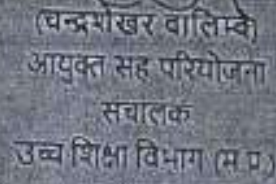 (चन्द्रशेखर वालिम्बे)
आयुक्त सह परियोजना
संचालक
उच्च शिक्षा विभाग (म.प्र.)